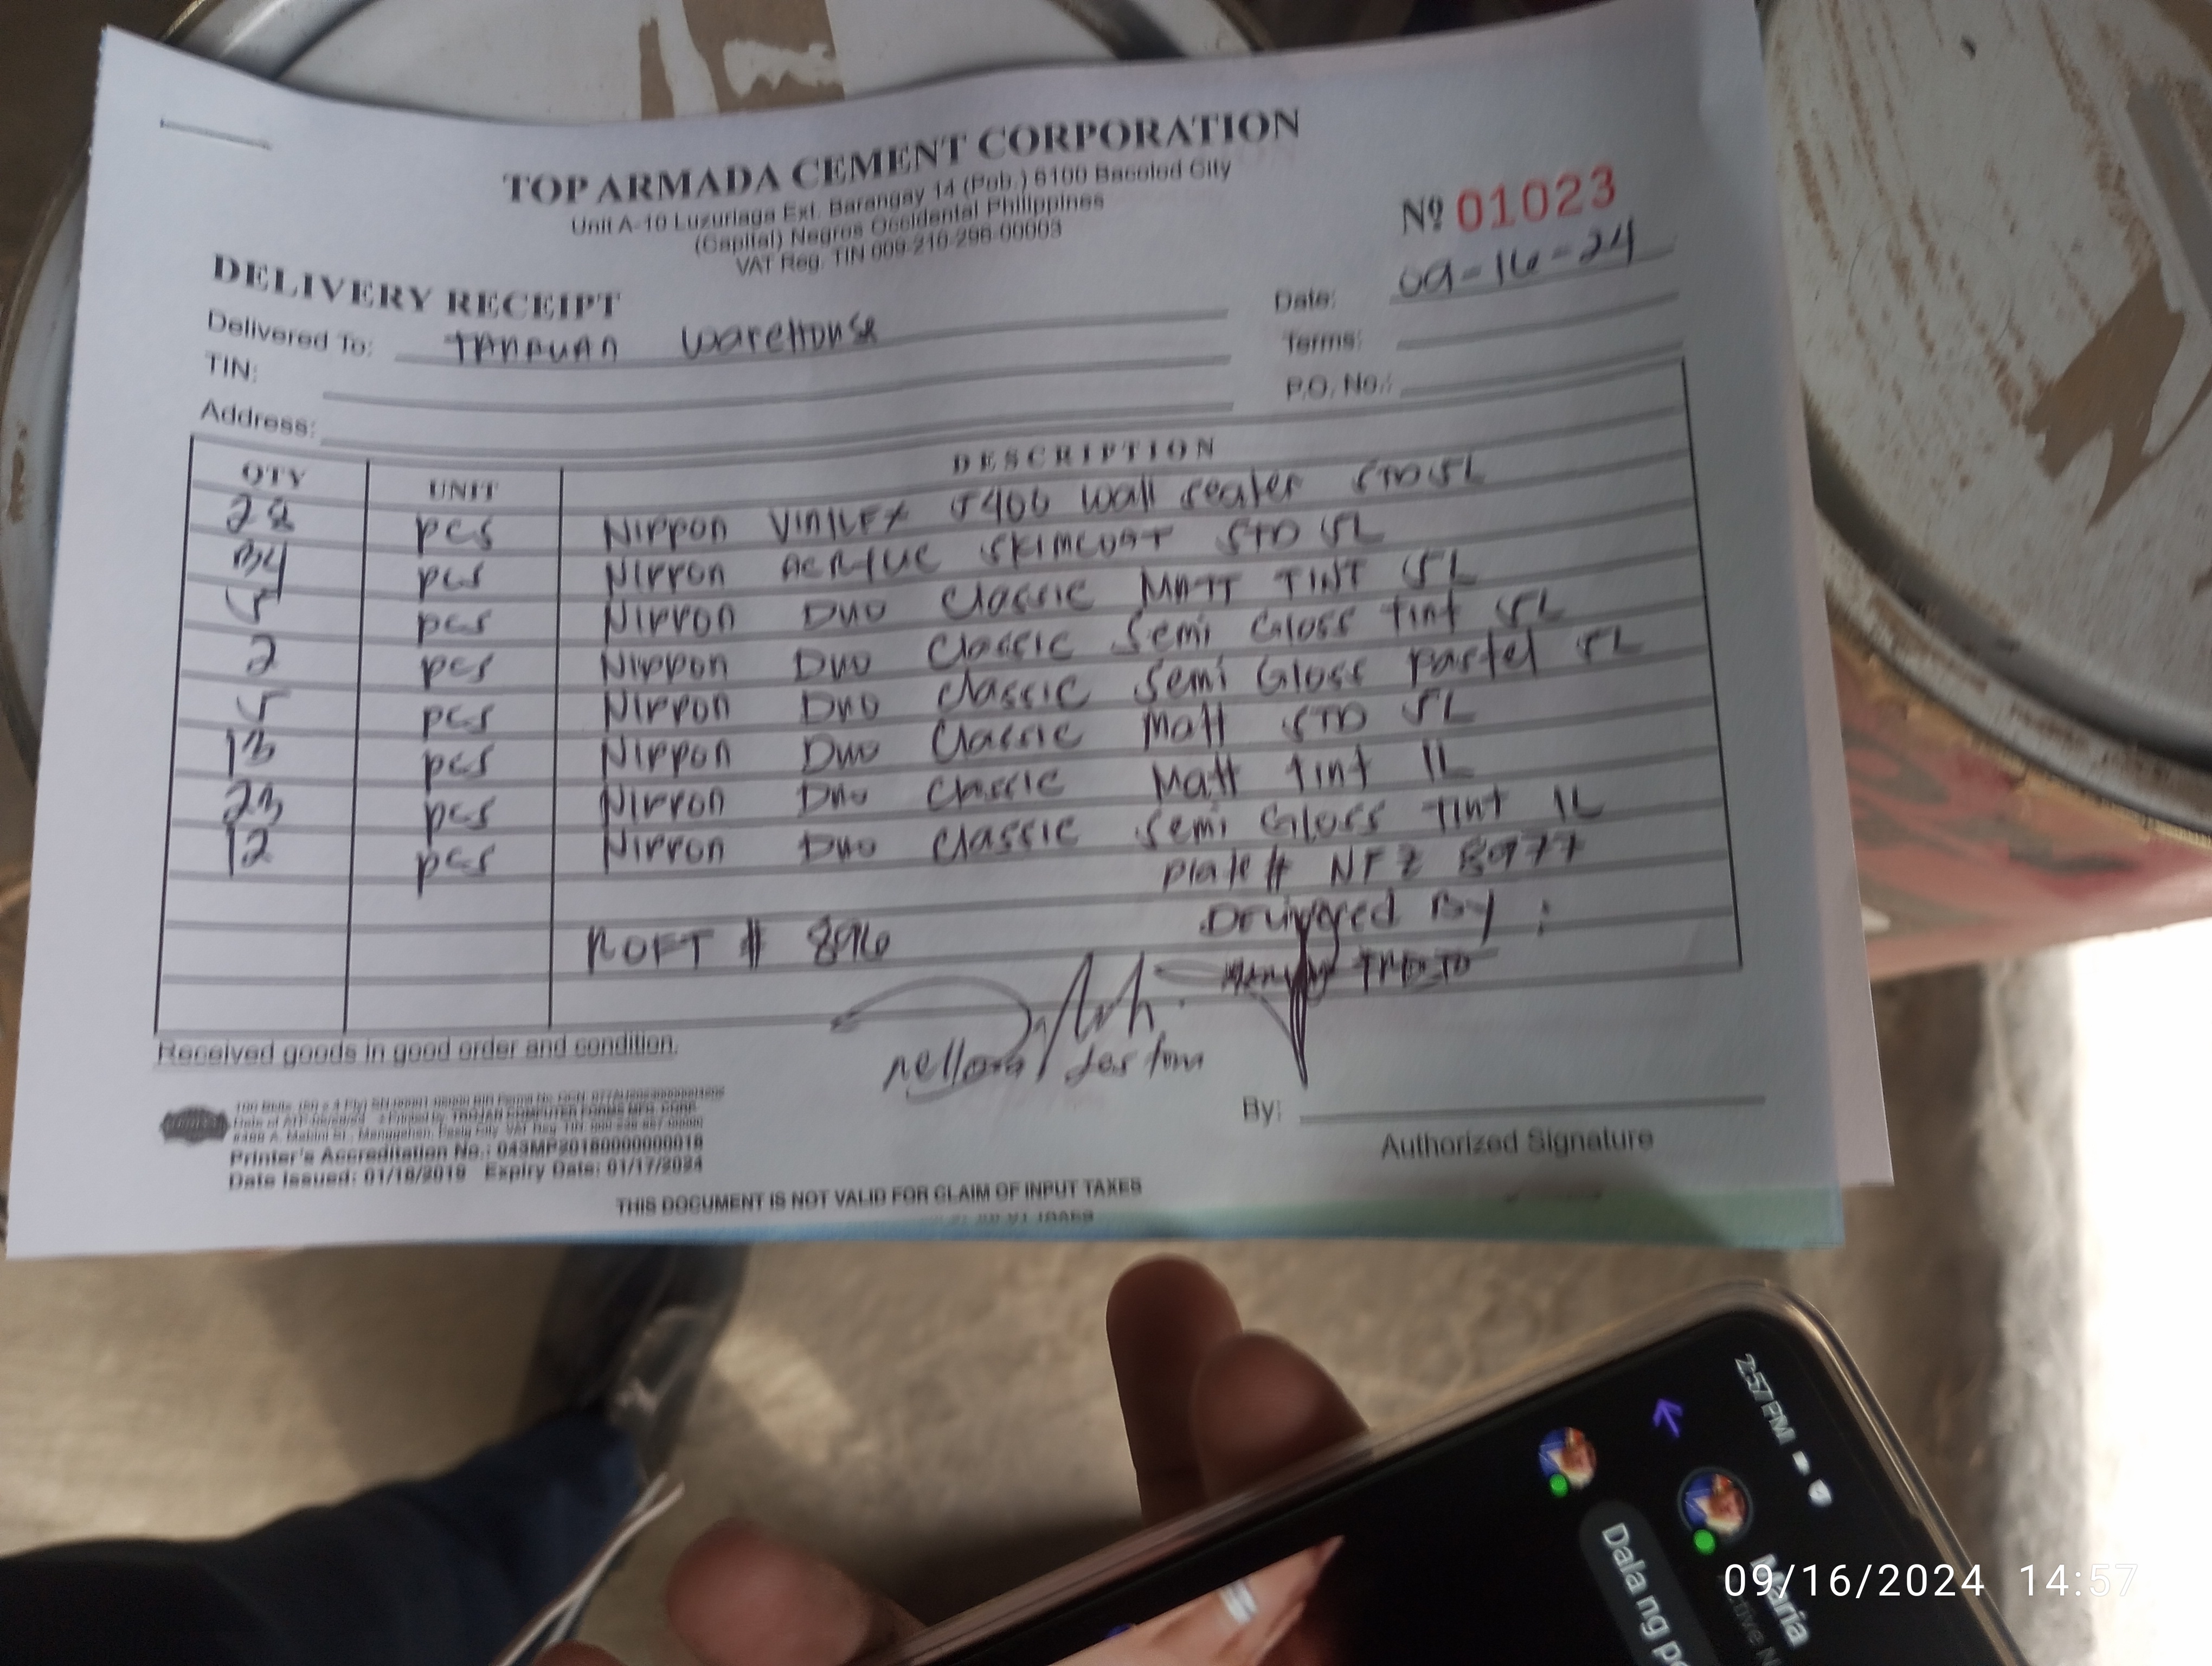 TOP ARMADA CEMENT CORPORATION
Unit A-10 Luzuriaga Ext. Barangay 14 (Pob.) 6100 Bacolod City
(Capital) Negros Occidental Philippines
VAT Reg. TIN 009-210-296-00003
Nº 01023
DELIVERY RECEIPT
Date: 09-16-24
Delivered To: TANAUAN WareHouse
Terms:
TIN:
P.O. No.:
Address:
QTY UNIT DESCRIPTION
28 pcs Nippon VINILEX 5400 wall sealer STD 5L
34 pcs Nippon ACRYLIC SKIMCOAT STD 5L
5 pcs Nippon Duo Classic MATT TINT 5L
2 pcs Nippon Duo Classic Semi Gloss Tint 5L
5 pcs Nippon Duo Classic Semi Gloss Pastel 5L
13 pcs Nippon Duo Classic Matt STD 5L
23 pcs Nippon Duo Classic Matt Tint 1L
12 pcs Nippon Duo Classic Semi Gloss Tint 1L
Plate # NFZ 8977
Delivered By :
ROFT # 896
Received goods in good order and condition.
By:
Authorized Signature
Printer's Accreditation No.: 043MP20180000000018
Date Issued: 01/18/2019 Expiry Date: 01/17/2024
THIS DOCUMENT IS NOT VALID FOR CLAIM OF INPUT TAXES
2:57 PM
Maria
Dala ng
09/16/2024 14:57